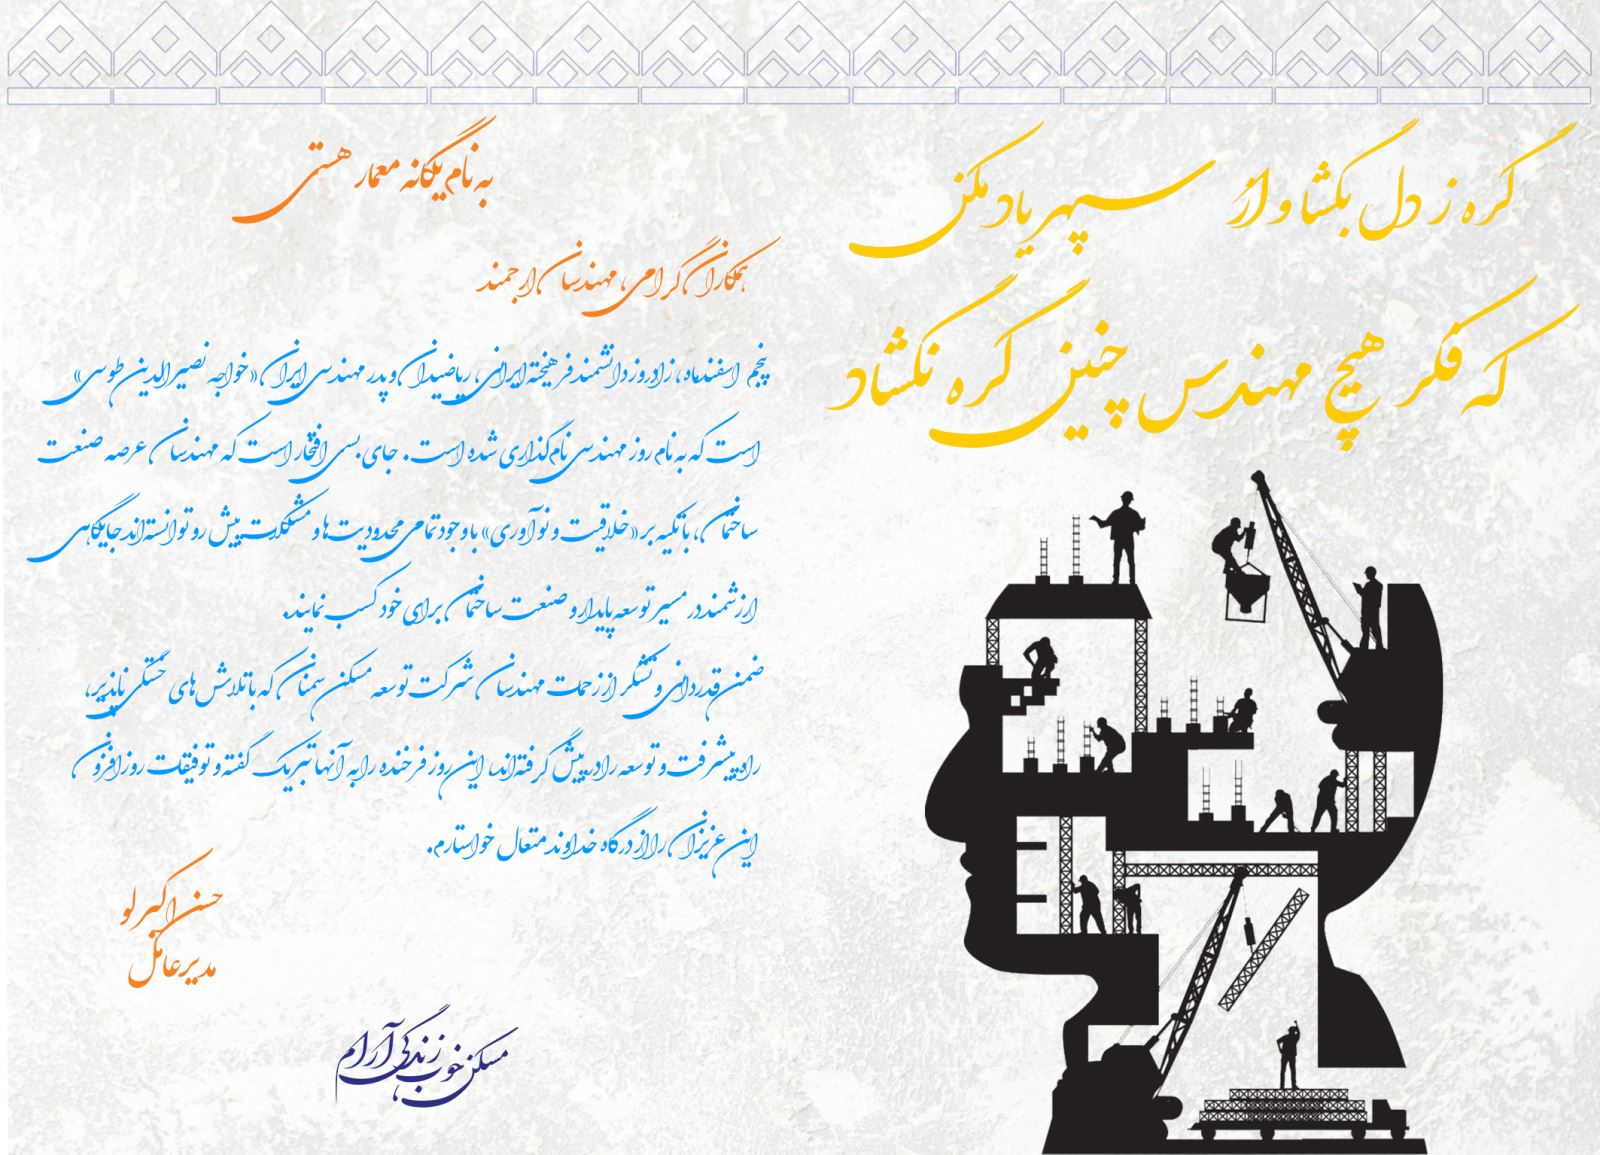 گره ز دل بگشا و از سپهر یاد مکن
که فکر هیچ مهندس چنین گره نگشاد
به نام یگانه معمار هستی
همکاران گرامی، مهندسان ارجمند
پنجم اسفندماه، زادروز دانشمند فرهیخته ایرانی، ریاضیدان و پدر مهندسی ایران «خواجه نصیرالدین طوسی»
است که به نام روز مهندسی نام‌گذاری شده است. جای بسی افتخار است که مهندسان عرصه صنعت
ساختمان، با تکیه بر «خلاقیت و نوآوری» با وجود تمامی محدودیت‌ها و مشکلات پیش رو توانسته‌اند جایگاهی
ارزشمند در مسیر توسعه پایدار و صنعت ساختمان برای خود کسب نمایند.
ضمن قدردانی و تشکر از زحمات مهندسان شرکت توسعه مسکن سمنان که با تلاش‌های خستگی ناپذیر،
راه پیشرفت و توسعه را در پیش گرفته‌اند، این روز فرخنده را به آنها تبریک گفته و توفیقات روزافزون
این عزیزان را از درگاه خداوند متعال خواستارم.
حسن اکبرلو
مدیرعامل
مسکن خوب، زندگی آرام